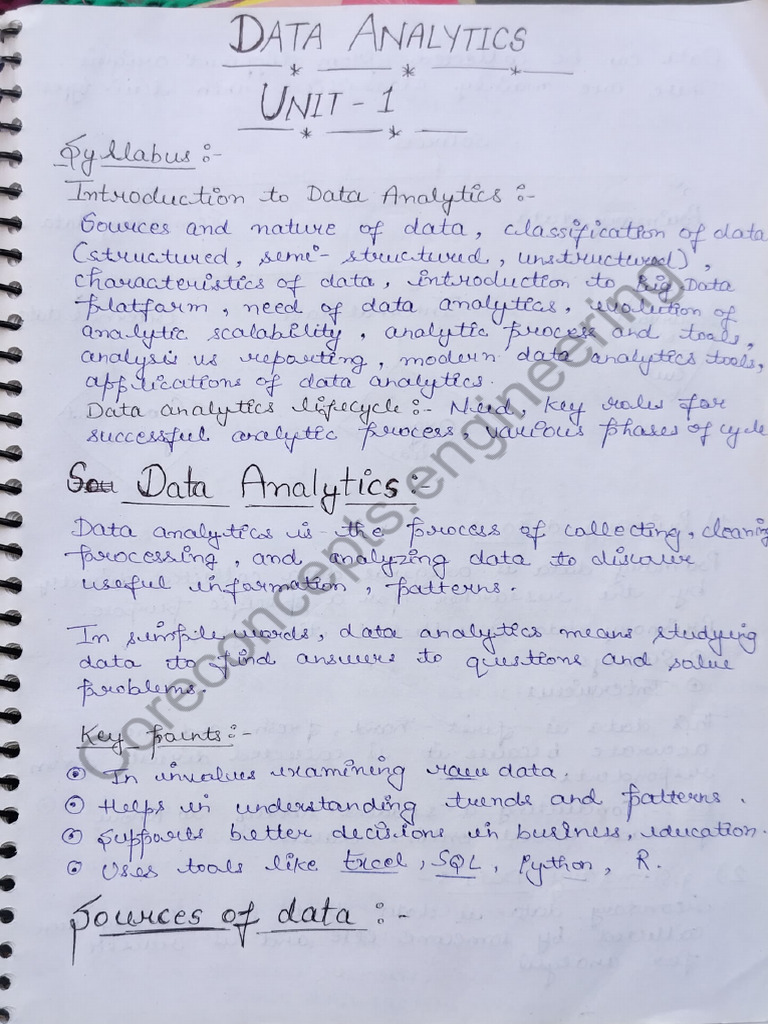 DATA ANALYTICS
UNIT - 1
Syllabus :-
Introduction to Data Analytics :-
Sources and nature of data, classification of data
(structured, semi-structured, unstructured),
characteristics of data, introduction to Big Data
platform, need of data analytics, evolution of
analytic scalability, analytic process and tools,
analysis vs reporting, modern data analytics tools,
applications of data analytics.
Data analytics lifecycle :- Need, key roles for
successful analytic process, various phases of cycle
Data Analytics :-
Data analytics is the process of collecting, cleaning
processing, and analyzing data to discover
useful information, patterns.
In simple words, data analytics means studying
data to find answers to questions and solve
problems.
Key points :-
In involves examining raw data.
Helps in understanding trends and patterns.
Supports better decisions in business, education.
Uses tools like Excel, SQL, Python, R.
Sources of data :-
coreconcepts.engineering